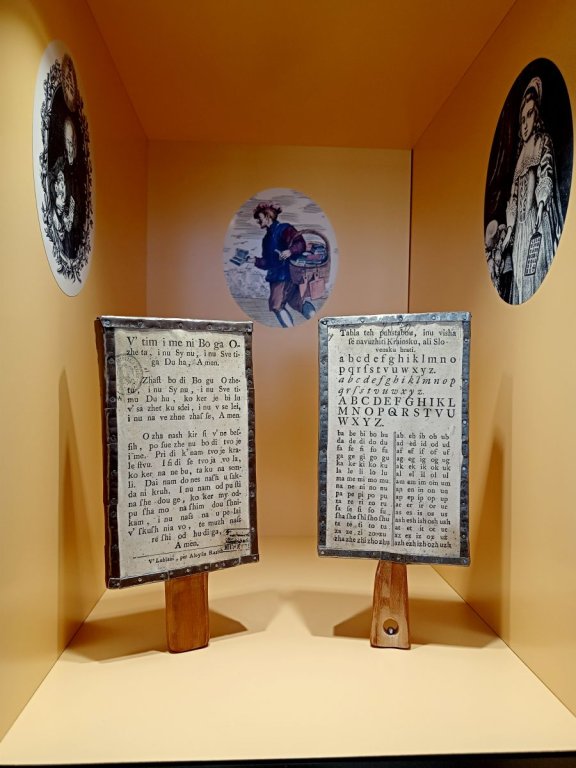 V' tim i me ni Bo ga O-
zhe ta, i nu Sy nu, i nu Sve ti-
ga Du ha, A men.
Zhaſt bo di Bo gu O zhe-
tu, i nu Sy nu, i nu Sve ti-
mu Du hu, ko ker je bi lu
v' sa zhet ku sdei, i nu v ſe lei,
i nu na ve zhne zhaſ ſe, A men.
O zha naſh kir ſi v' ne beſ-
ſih, po ſve zhe nu bo di tvo je
i me. Pri di k' nam tvo je kra-
le ſtvu. I ſi di ſe tvo ja vo la,
ko ker na ne bu, ta ku na sem-
li. Dai nam do nes naſh
da ni kruh. I nu nam od pu ſti
na ſhe dou ge, ko ker my od-
pu ſha mo na ſhim dou ſhni-
kam, i nu naſs na u pe lai
v' ſkuſh nia vo, te muzh naſs
re ſhi od hu di ga,
A men.
V' Lublani, per Aloysiu
Tabla teh puhſtabou, inu viſha
ſe navuzhiti Kraiosku, ali Slo-
vensku brati.
a b c d e f g h i k l m n o
p q r ſ s t u v w x y z.
a b c d e f g h i k l m n o p
q r ſ s t u v w x y z.
A B C D E F G H I K L
M N O P Q R S T V U
W X Y Z.
ba be bi bo bu ab eb ib ob ub
da de di do du ad ed id od ud
fa fe fi fo fu af ef if of uf
ga ge gi go gu ag eg ig og ug
ka ke ki ko ku ak ek ik ok uk
la le li lo lu al el il ol ul
ma me mi mo mu am em im om um
na ne ni no nu an en in on un
pa pe pi po pu ap ep ip op up
ra re ri ro ru ar er ir or ur
ſa ſe ſi ſo ſu as es is os us
ſha ſhe ſhi ſho ſhu ash esh ish osh ush
ta te ti to tu at et it ot ut
za ze zi zo zu az ez iz oz uz
zha zhe zhi zho zhu azh ezh izh ozh uzh